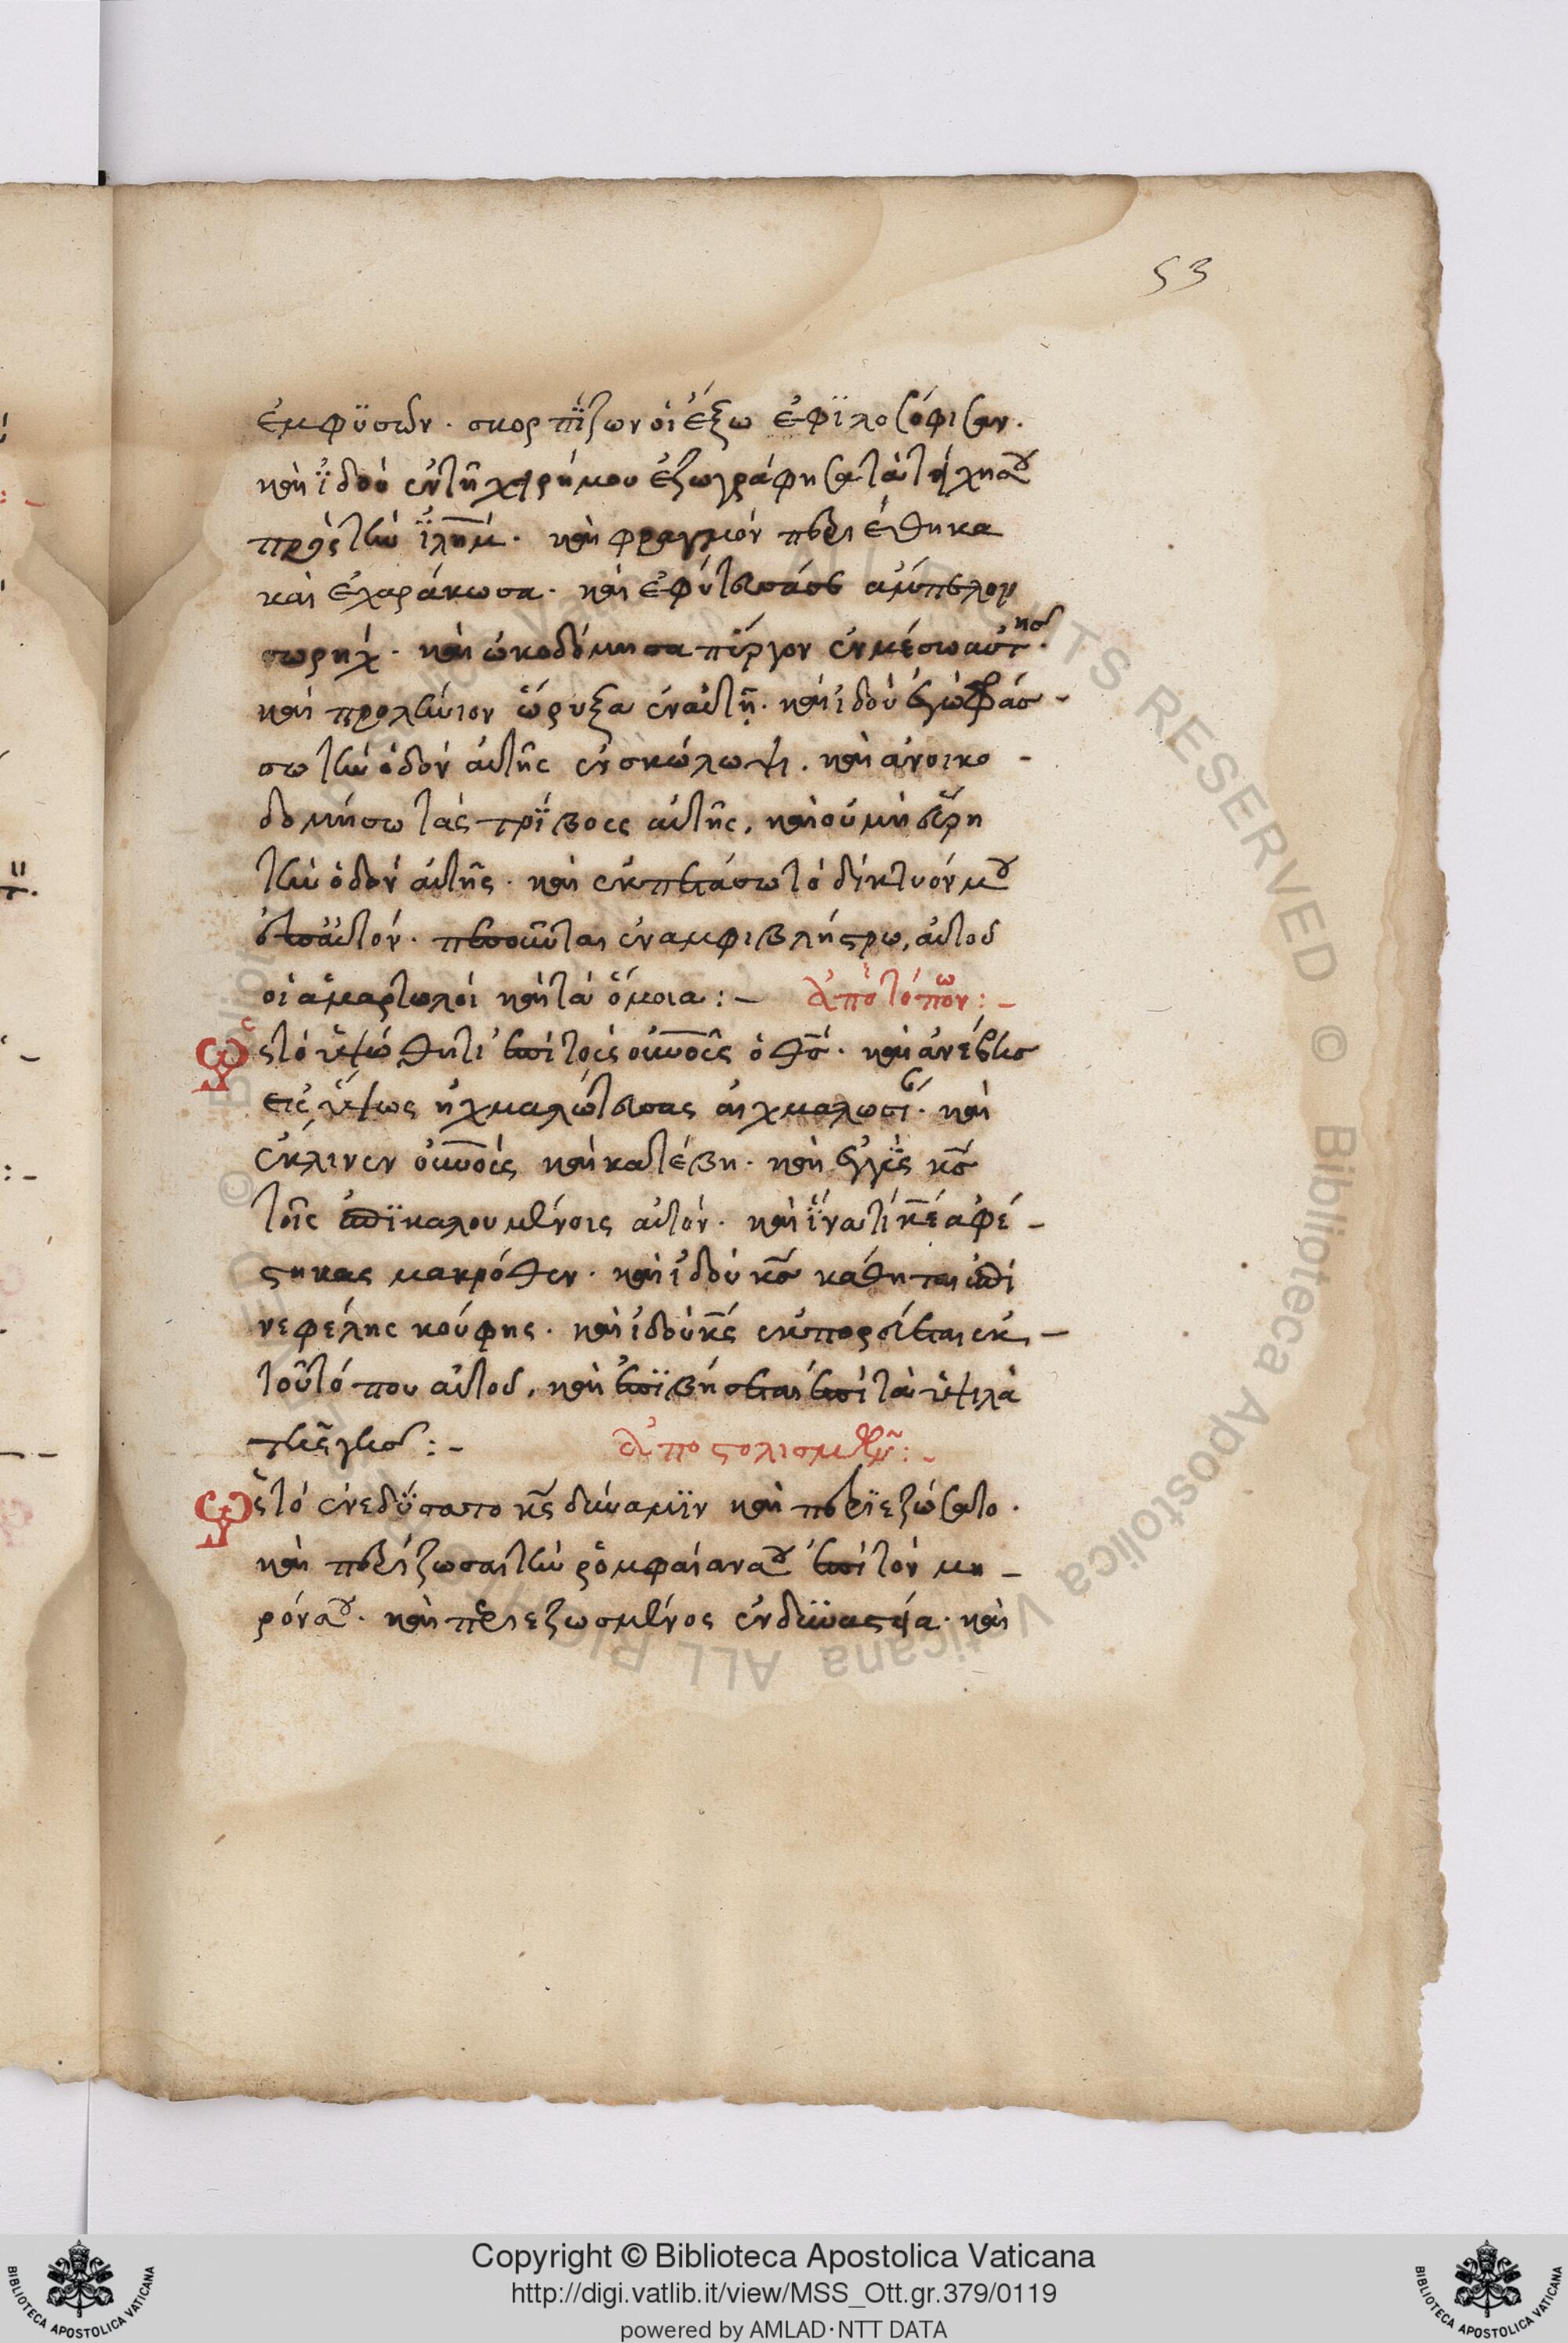 53
ἐμφϋσῶν · σκορπΐζων οἱ ἔξω ἐφϊλοσόφισαν ·
καὶ ἰδοὺ ἐν τῇ χειρί μου ἐζωγράφησα τὰ τείχη σου
πρὸς τὴν ϊλημ · καὶ φραγμὸν περιέθηκα
καὶ ἐχαράκωσα · καὶ ἐφύτευσά σε ἄμπελον
σωρηχ · καὶ ὠκοδόμησα πύργον ἐν μέσω αὐτῆς ·
καὶ προλήνιον ὤρυξα ἐν αὐτῇ · καὶ ἰδοὺ ἐγὼ φράσ-
σω τὴν ὁδὸν αὐτῆς ἐν σκώλωψι · καὶ ἀνοικο-
δομήσω τὰς τρίβους αὐτῆς, καὶ οὐ μὴ εὕρη
τὴν ὁδὸν αὐτῆς · καὶ ἐκπετάσω τὸ δίκτυόν μου
ἐπ αὐτόν · πεσοῦνται ἐν ἀμφιβλήστρω, αὐτοῦ
οἱ ἁμαρτωλοὶ καὶ τὰ ὅμοια : - ἀπὸ τόπων : -
Ὡς τὸ ὑψώθητι ἐπὶ τοὺς οὐνοὺς ὁ θς · καὶ ἀνέβης
εἰς ὕψως ἠχμαλώτευσας αἰχμαλωσί · καὶ
ἔκλινεν οὐνοὺς καὶ κατέβη · καὶ ἐγγὺς κς
τοῖς ἐπϊκαλουμένοις αὐτόν · καὶ ἵνα τί κε ἀφέ-
στηκας μακρόθεν · καὶ ἰδοὺ κς κάθηται ἐπὶ
νεφέλης κούφης · καὶ ἰδοὺ κς ἐκπορεύεται ἐκ -
τοῦ τόπου αὐτοῦ, καὶ ἐπϊβήσεται ἐπὶ τὰ ὑψιλὰ
τῆς γῆς : - ἀπὸ στολισμῶν : -
Ὡς τὸ ἐνεδύσατο κς δύναμϊν καὶ περϊεζώσατο ·
καὶ περίζωσαι τὴν ῥομφαίαν σου ἐπὶ τὸν μη-
ρόν σου · καὶ περιεζωσμένος ἐν δυναστεία · καὶ
Copyright © Biblioteca Apostolica Vaticana
http://digi.vatlib.it/view/MSS_Ott.gr.379/0119
powered by AMLAD·NTT DATA